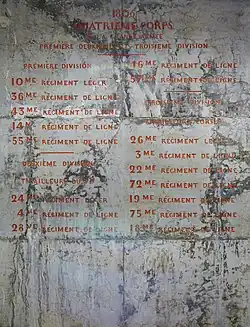 QUATRIÈME CORPS
PREMIÈRE
TROISIÈME DIVISION
PREMIÈRE DIVISION
46ME RÉGIMENT DE LIGNE
10ME RÉGIMENT LÉGER
RÉGIMENT DE LIGNE
36ME RÉGIMENT DE LIGNE
43ME RÉGIMENT DE LIGNE
DIVISION
14ME RÉGIMENT DE LIGNE
55ME RÉGIMENT DE LIGNE
26ME RÉGIMENT
3ME RÉGIMENT DE LIGNE
DEUXIÈME DIVISION
22ME RÉGIMENT DE LIGNE
TIRAILLEURS
72ME RÉGIMENT DE LIGNE
24ME RÉGIMENT LÉGER
19ME RÉGIMENT DE LIGNE
4ME RÉGIMENT DE LIGNE
75ME RÉGIMENT DE LIGNE
28ME RÉGIMENT DE LIGNE
RÉGIMENT DE LIGNE